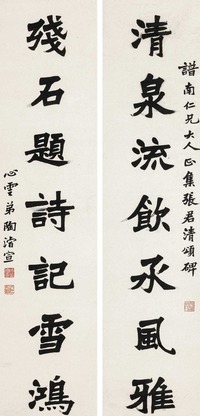 譜南仁兄大人正集張君清頌碑
清泉流飲承風雅
殘石題詩記雪鴻
心雲弟陶濬宣